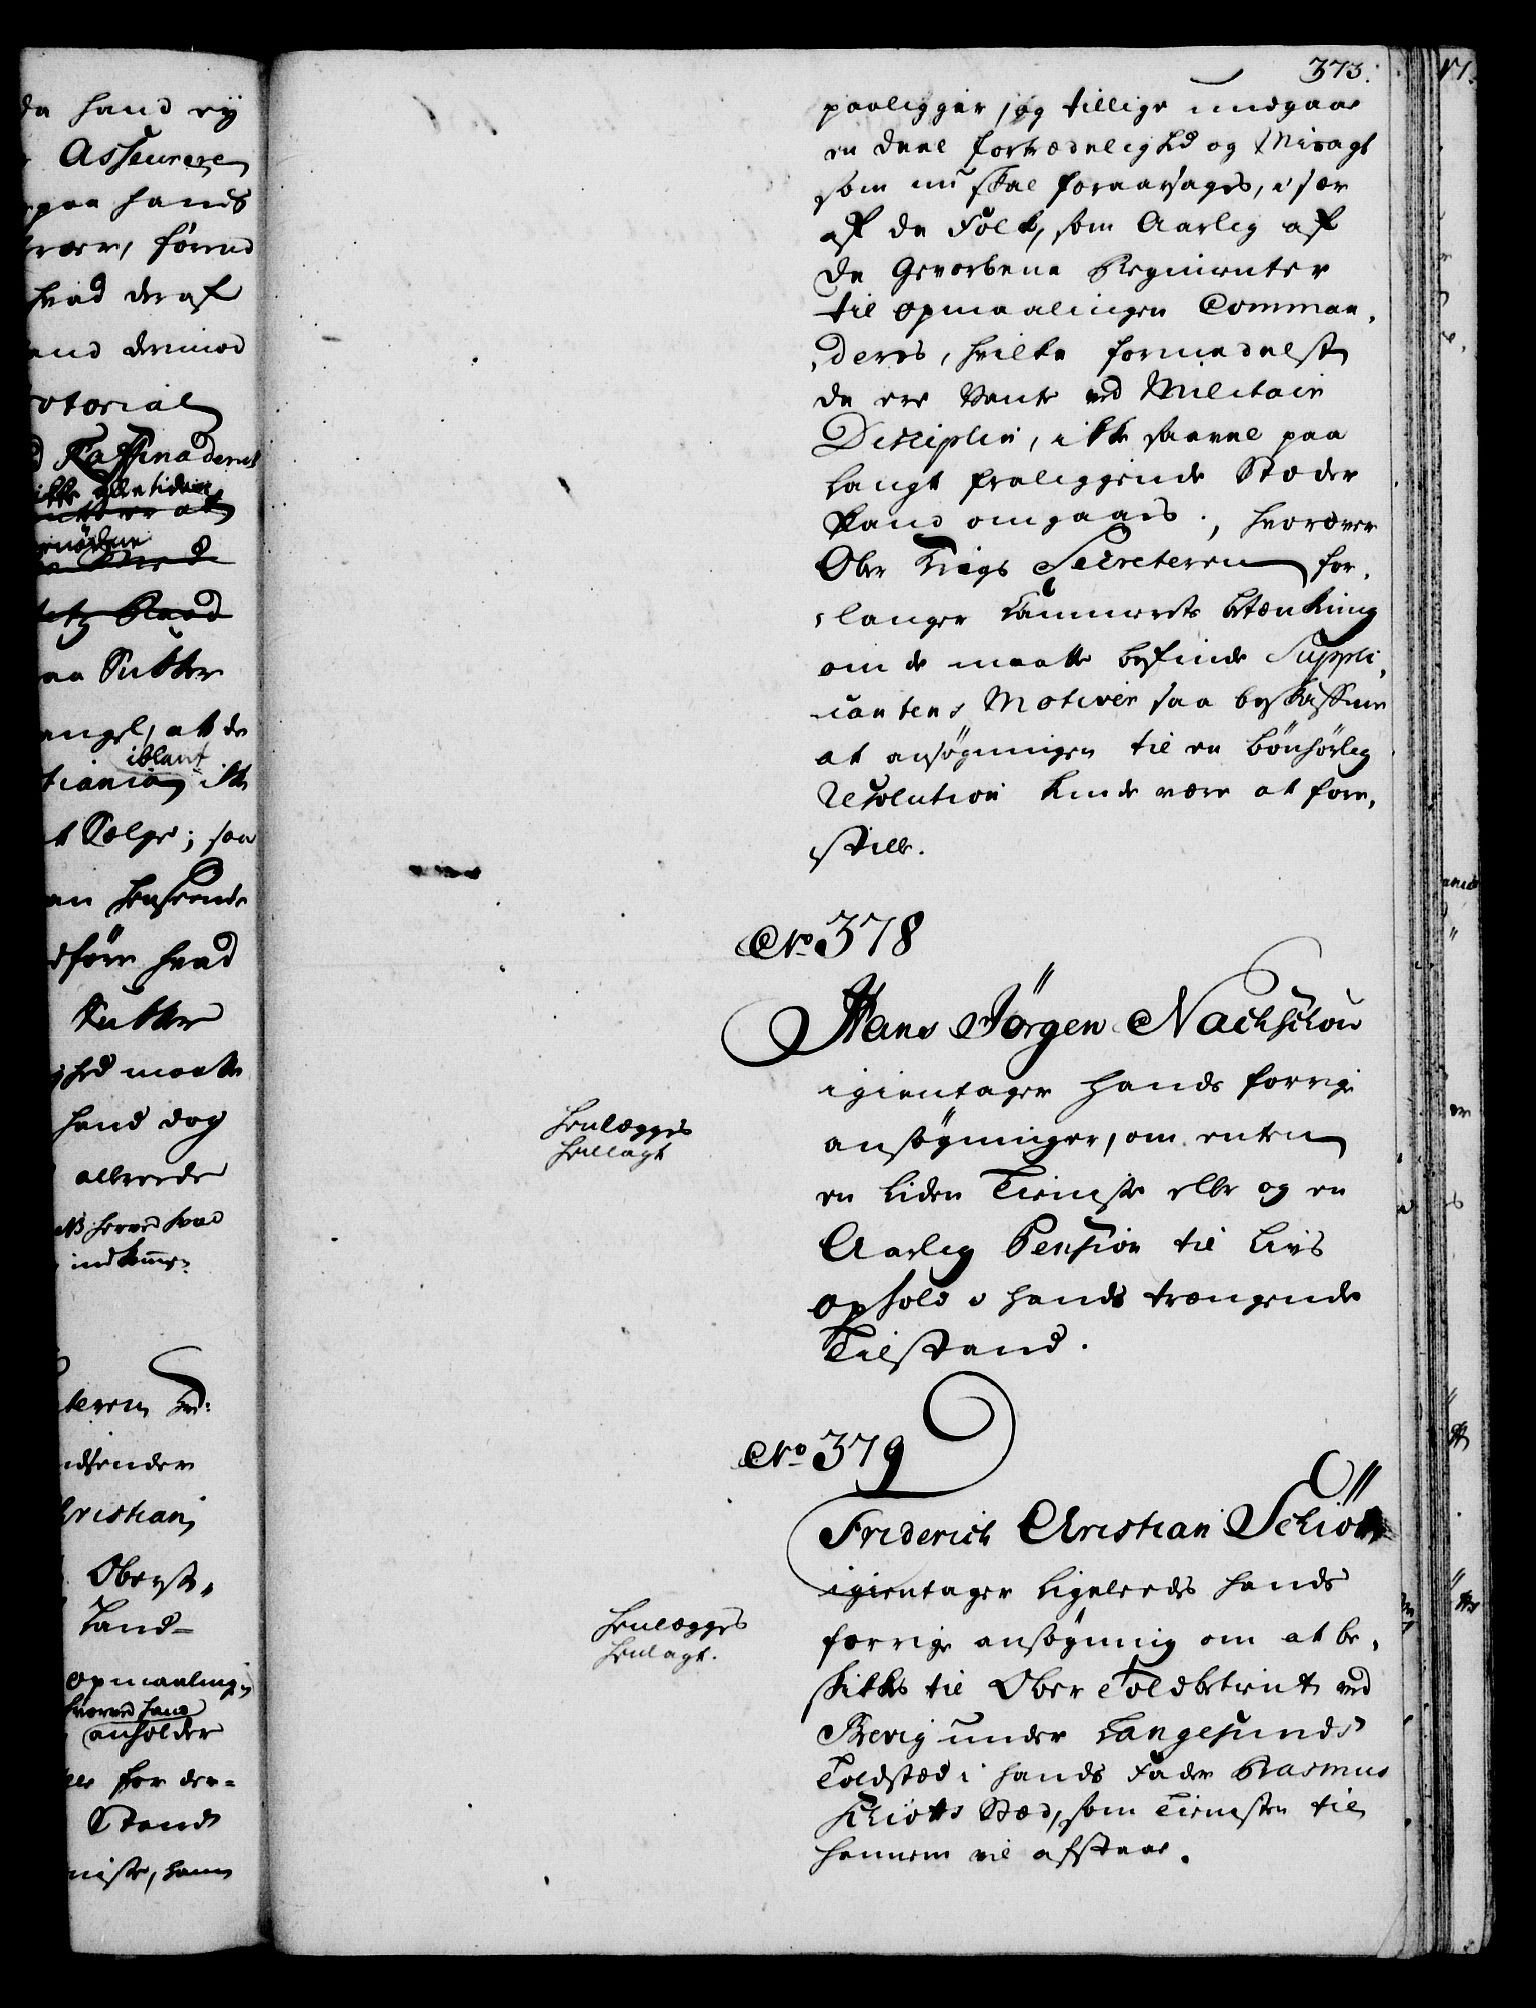 373.
paaligger, og tillige undgaae
en deel fortrædelighd og Misagt
som nu skal foraarsages, i sær
af de Folk, som Aarlig af
de Gevorbene Regimenter
til opmaalingen Comman-
deres, hvilke formedelst
de ere Vante ved Militair
Disciplin, ikke saavel paa
langt fraliggende Stæder
kand omgaaes; hvorover
Ober Krigs Secreteren for-
langer Cammerets betænkning
om de maatte befinde Suppli-
cantens Motiver saa beskaffene
at ansøgningen til en bönhörlig
Resolution kunde være at fore-
stille.
No. 378
Hans Jörgen Nachschou
igientager hands forrige
ansøgninger, om enten
en liden Tieniste eller og en
Aarlig Pension til Livs
ophold i hands trængende
Tilstand.
henlægges
henlagt
No. 379
Friderich Christian Schiött
igientager ligeleedes hands
forrige ansøgning om at be-
skikkes til Ober Toldbetient ved
Brevig under Langesunds
Toldsted i hands Fader Rasmus
Schiötts Sted, som Tienisten til
hannem vil afstaae.
henlægges
henlagt.
da hand ey
Asseurere
paa hands
förend
hvad deraf
and derimod
Raffinaderiet
ikke alletider
Sukker
angel, at de
iblant
t Sælge; saa
an henseende
dföre hvad
Sukker
ghed maatte
hand dog
allerede
NB herved hvad
indkom:
ndsender
hristian
Oberst-
Land-
opmaaling
hvorved hand
anholder
for den-
Stand
niste, ham